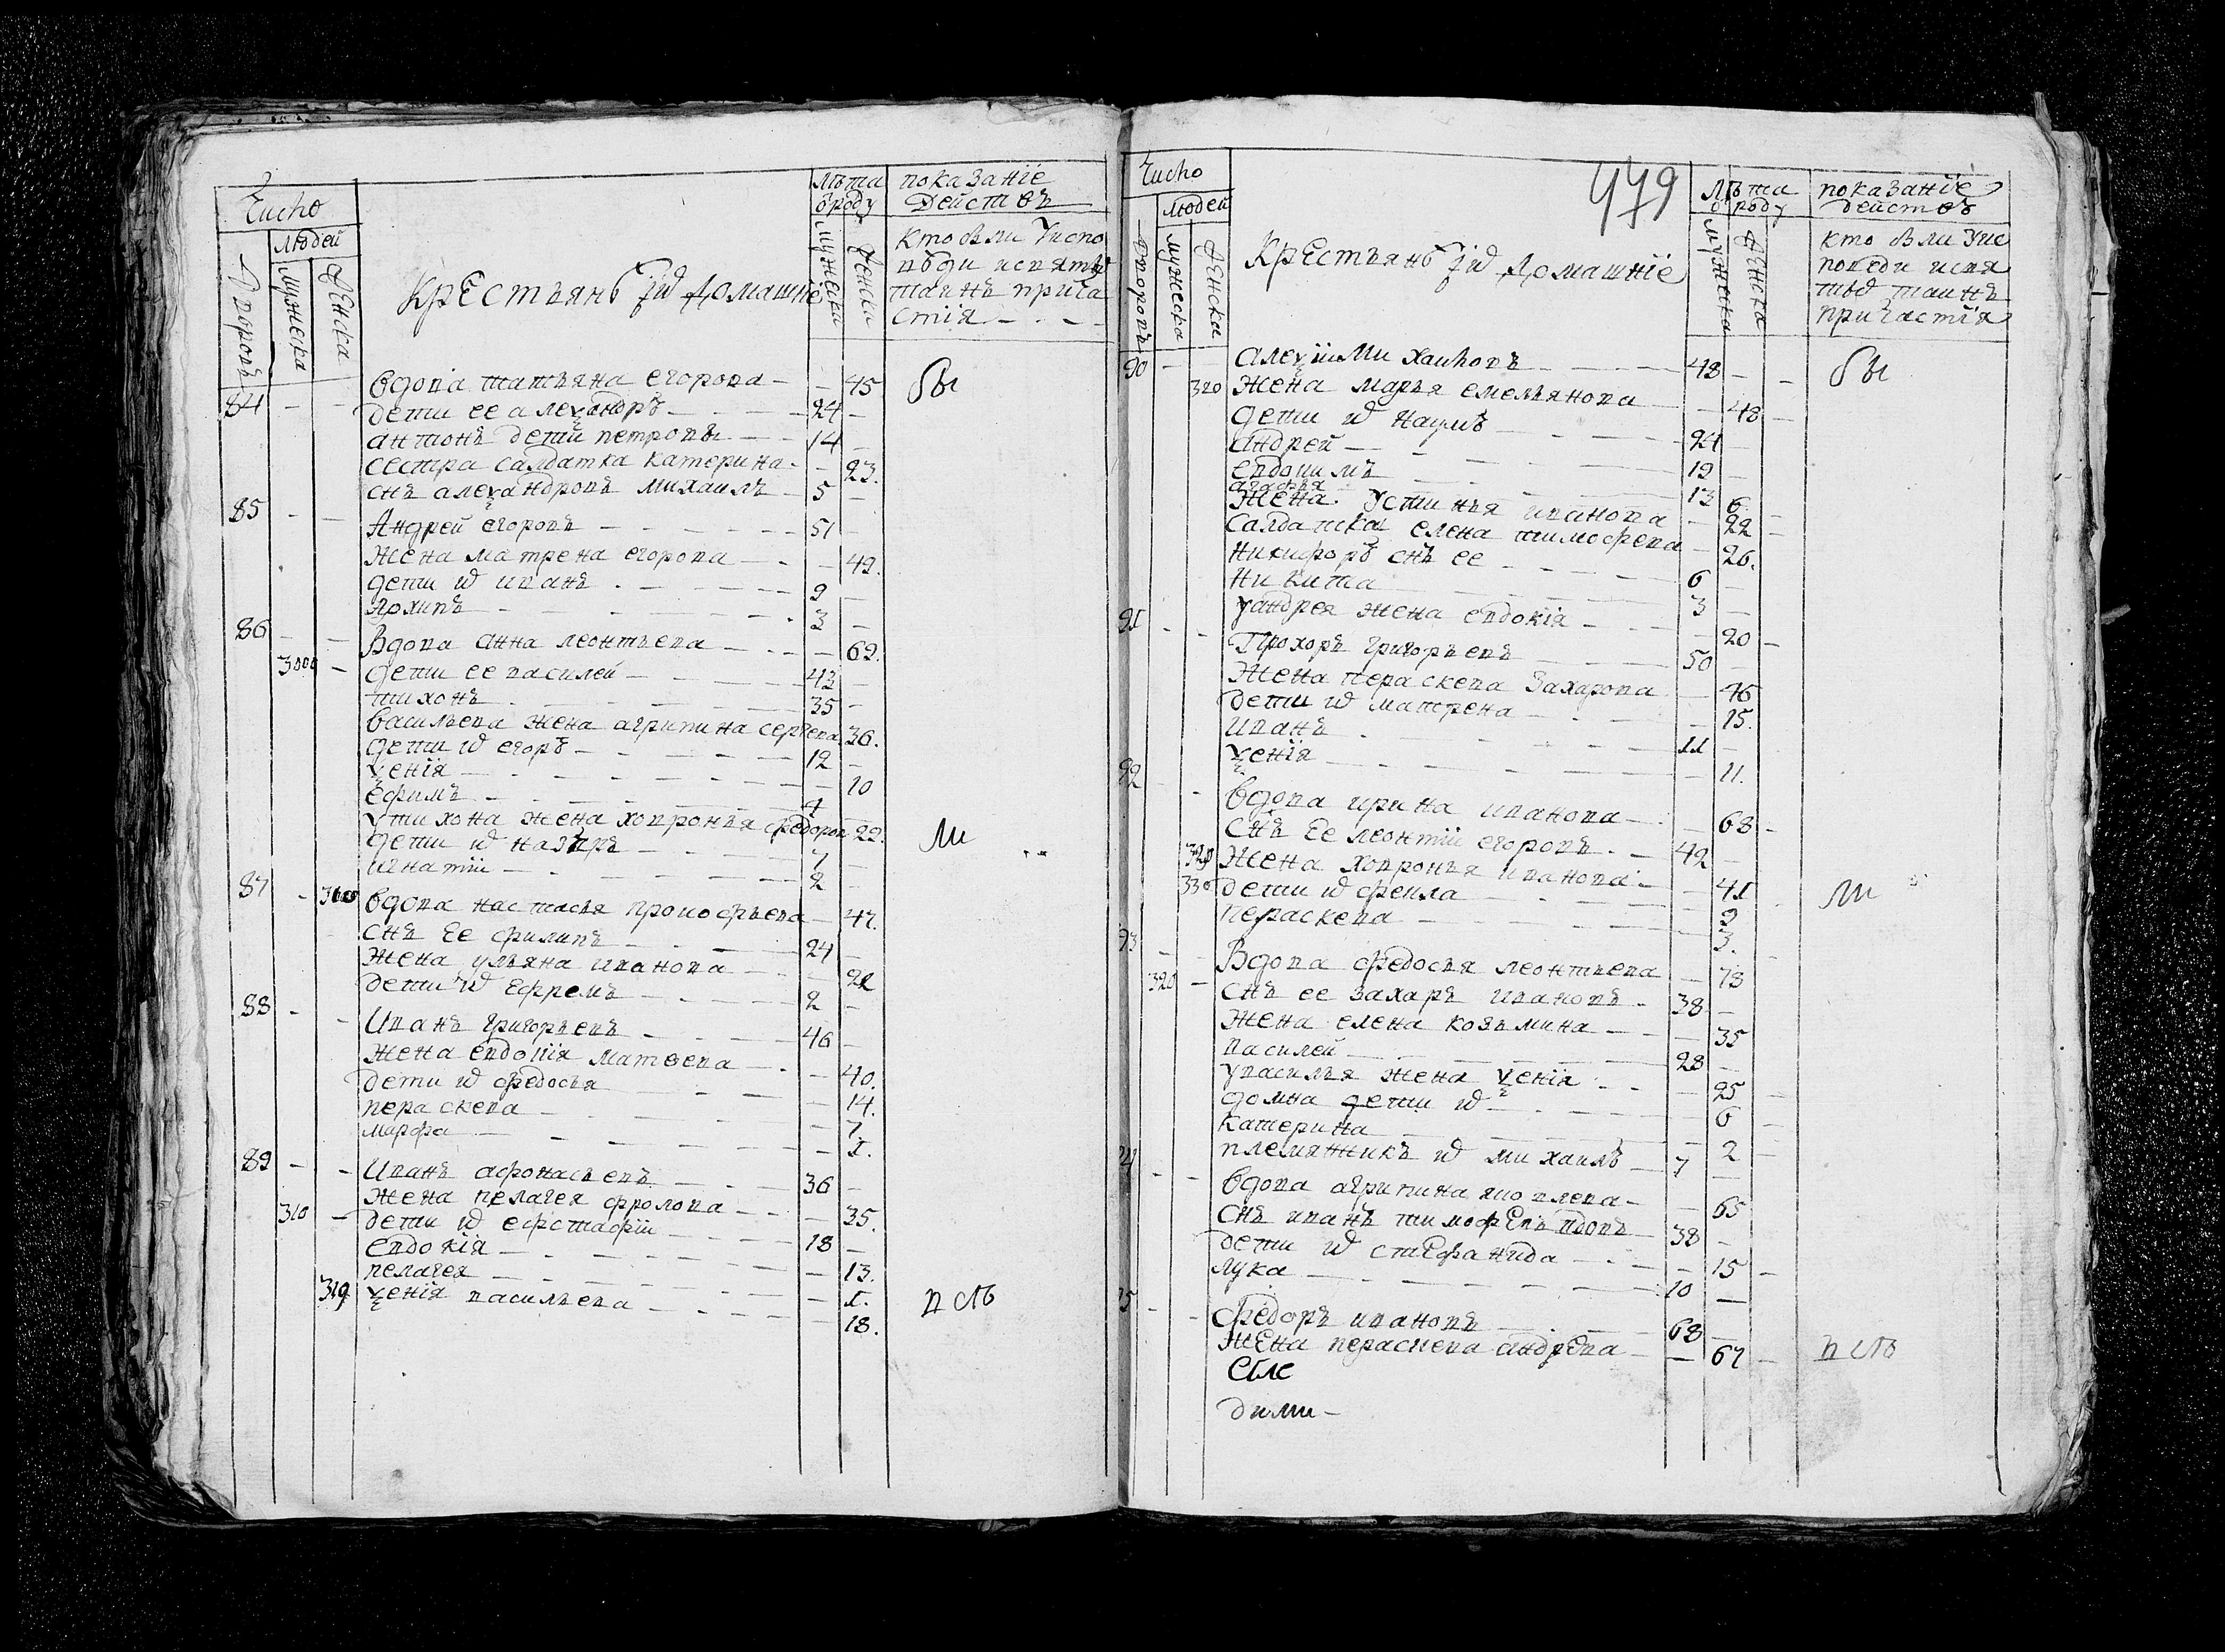 Число
людей
дворовъ
мужеска
женска
крестьянѣ и их домашніе
лѣта
ѿ роду
мужеска
женска
показаніе
действъ
кто были у испо
вѣди и святы
таинъ прича
стія
84 вдова татьяна егорова 45 бы
дети ее алеѯандръ 24
антонъ дети петровы 14
сестра салдатка катерина 23.
снъ алеѯандровъ михаилъ 5
85 Андрей егоровъ 51
жена матрена егорова 49.
дети их иванъ 9
Архипъ 3
86 Вдова анна леонтьева 69.
300 дети ее василей 43
тихонъ 35
васильева жена агрипина сергева 36.
дети их егоръ 12
ѯенія 10
ефимъ 4
у тихона жена ховронья федоров 29.
дети их назаръ 7 ли
игнатіи 2
87 вдова настасья промофьева 47.
снъ ее филипъ 24
жена ульяна иванова 22
дети их ефремъ 2
88 Иванъ григорьевъ 46
жена евдокія матвева 40.
дети их федосья 14.
пераскева 7
марфа 1.
89 Иванъ афонасьевъ 36
жена пелагея фролова 35.
310 дети их ефстафіи 18
евдокія 13.
пелагея 1.
319 ѯенія васильева 18. в сѣ
479
Число
людей
дворовъ
мужеска
женска
крестьянѣ и их домашніе
лѣта
ѿ роду
мужеска
женска
показаніе
действъ
кто были у ис
поведи и свя
тых таинъ
причастія
90 алеѯіи михаиловъ 48 бы
320 жена марья емельянова 48
дети их наумъ 24
андрей 19
евдокимъ 13
агафья 6
жена устинья иванова 22
салдатка елена тимофева 26.
никифоръ снъ ее 6
никита 3
у андрея жена евдокія 20
91 Прохоръ григорьевъ 50
жена пераскева захарова 46
дети их матрена 15.
иванъ 11
ѯенія 11.
92 вдова ирина иванова 68
снъ ее леонтіи егоровъ 42
жена ховронья иванова 41
330 дети их фекла 9 ли
пераскева 3.
93 Вдова федосья леонтьева 78
320 снъ ее захаръ ивановъ 38
жена елена козьмина 35
василей 28
у василья жена ѯенія 25
домна дети их 6
катерина 2
племянникъ их михаилъ 7
94 вдова агрипина яковлева 65
снъ иванъ тимофѣевъ вдовъ 38
дети их стефанида 15
лука 10
95 федоръ ивановъ 68
жена пераскева андрева 67 в сѣ